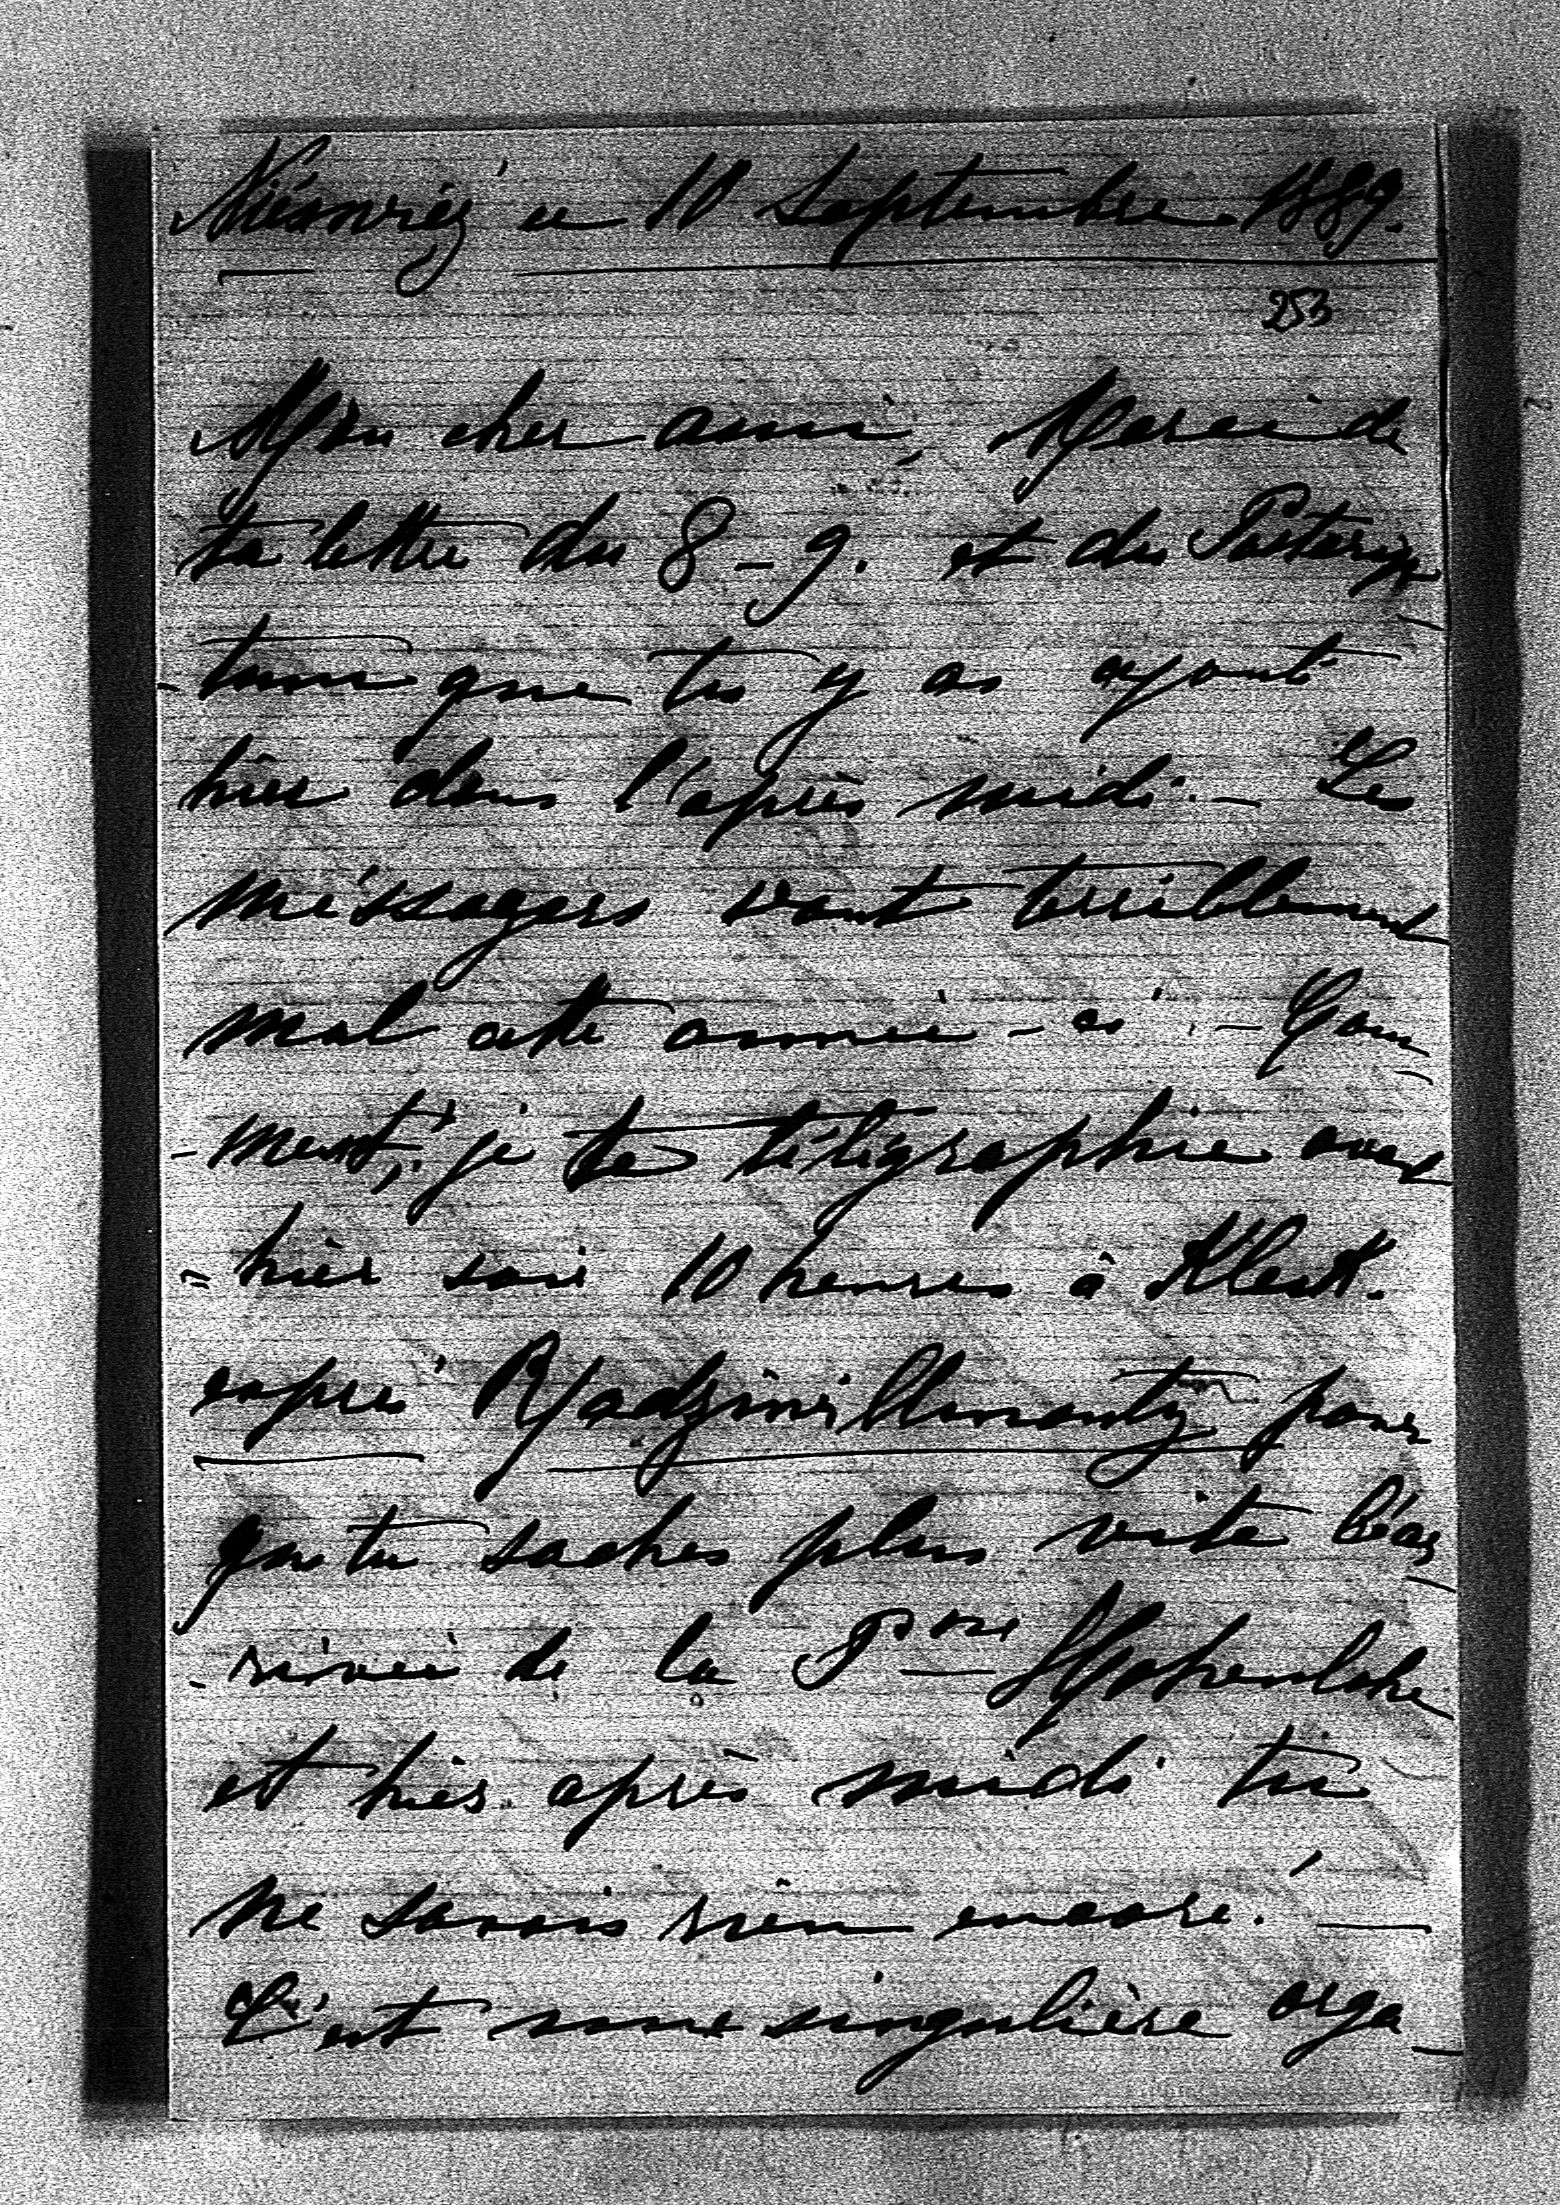 Niéswiéz ce 10 Septembre 1889.
253
Mon cher ami, Merci de
ta lettre du 8-9. et du Postscrip
-tum que tu y as ajouté
hier dans l'après midi. – Les
méssagers vont terriblement
mal cette année-ci. – Com
-ment,! je te télégraphie avant
=hier soir 10 heures à Kletzk.
exprès Radziwillmonty pour
que tu saches plus vite l'ar
-rivée de la Psse Hohenlohe
et hier après midi tu
ne savais rien encore! —
C'est une singulière orga-